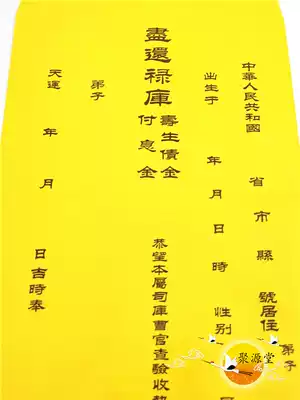 中華人民共和國
省市縣
號居住
弟子
出生于
年月日時
性别
盡還祿庫
壽生債金
付息金
恭望本屬司庫曹官查驗收執
弟子
天運
年月
日吉時奉
聚源堂